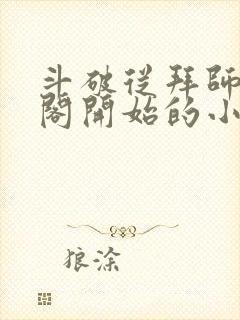 斗破從拜師
閣開始的小
狼涂